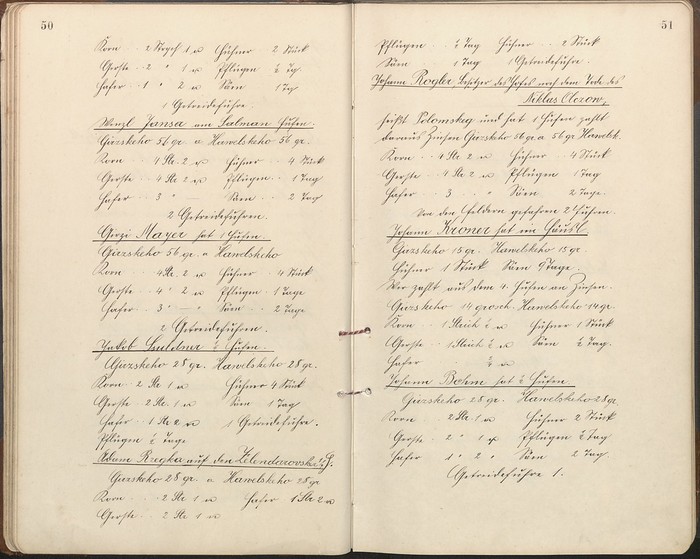 50
Korn .. 2 Strych 1 w Hühner 2 Stück
Gerste .. 2 " 1 w Pflügen ½ Tg
Hafer .. 1 " 2 w Säen 1 Tg
1 Getreidefuhre.
Wenzl Jansa am Salman Hufen.
Gürskeho 56 gr. a Hawelskeho 56 gr.
Korn .. 4 Str. 2 w Hühner .. 4 Stück
Gerste .. 4 Str. 2 w Pflügen .. 1 Tag
Hafer .. 3 " — Säen .. 2 Tag
2 Getreidefuhren.
Girzi Mayer hat 1 Hufen.
Gürskeho 56 gr. a Hawelskeho
Korn .. 4 Str. 2 w Hühner 4 Stück
Gerste .. 4 " 2 w Pflügen .. 1 Tage
Hafer .. 3 " — " Säen .. 2 Tage
2 Getreidefuhren.
Jakob ½ Hufen.
Gürskeho 28 gr. Hawelskeho 28 gr.
Korn .. 2 Str. 1 w Hühner 4 Stück
Gerste .. 2 Str. 1 w Säen 1 Tag
Hafer .. 1 Str. 2 w 1 Getreidefuhre.
Pflügen ½ Tage
Adam Rzegka auf den
Gürskeho 28 gr. a Hawelskeho 28 gr
Korn .. 2 Str 1 w Hafer 1 Str 2 w
Gerste .. 2 Str 1 w
51
Pflügen .. ½ Tag Hühner .. 2 Stück
Säen 1 Tag 1 Getreidefuhre.
Johann Rogler Besitzer des Hofes nach dem Tode des
Niklas
heißt und hat 1 Hufen zahlt
daraus Zinsen Gürskeho 56 gr. a 56 gr Hawelsk.
Korn .. 4 Str. 2 w Hühner .. 4 Stück
Gerste .. 4 Str. 2 w Pflügen 1 Tag
Hafer .. 3 .. " Säen 2 Tage.
Von den Feldern gefahren 2 Fuhren.
Johann Kroner hat ein Häusl
Gürskeho 15 gr. Hawelskeho 15 gr.
Hühner 1 Stück Säen 9 Tage.
Wer zahlt aus dem 4. Hufen an Zinsen.
Gürskeho 14 grosch. Hawelskeho 14 gr.
Korn .. 1 Strich ½ w Hühner 1 Stück
Gerste .. 1 Strich ½ w Säen ½ Tag.
Hafer ½ w
Johann Böhm hat ½ Hufen.
Gürskeho 28 gr. Hawelskeho 28 gr.
Korn .. 2 Str. 1 w Hühner 2 Stück
Gerste .. 2 " 1 w Pflügen ½ Tag
Hafer .. 1 " 2 " Säen 2 Tag.
Getreidefuhre 1.